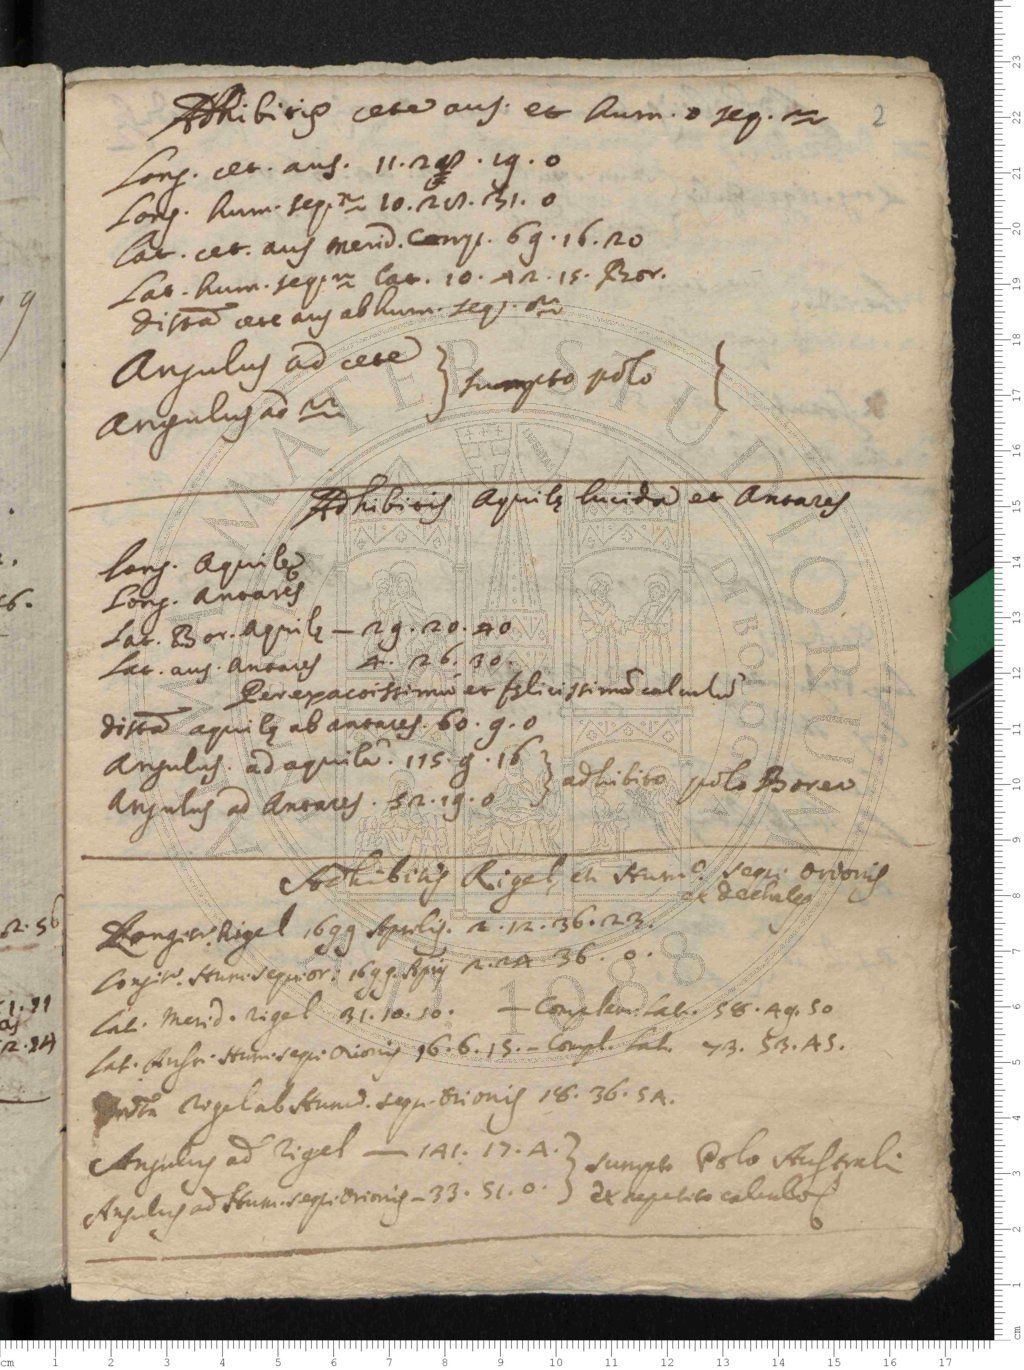 Adhibitis cete aus. et hum. seq. ♒ 2
Long. cet. aus. 11. 28. 19. 0
Long. hum. seq. ♒ 10. 28. 31. 0
Lat. cet. aus merid. Compl. 69. 16. 20
Lat. hum. seq. ♒ lat. 10. 42. 15. Bor.
dista cete aus ab hum. seq. ♒
Angulus ad cete
sumpto polo
Angulus ad ♒
Adhibitis Aquilę lucida et Antares
Long. Aquilę
Long. Antares
Lat. Bor. Aquilę — 29. 20. 40
Lat. aus. Antares 4. 26. 30.
Per exactissimũ et felicissimũ calculũ
dista aquilę ab antares. 60. 9. 0
Angulus. ad aquilã. 115. 9. 16
adhibito polo Boreo
Angulus ad Antares. 52. 19. 0
Adhibitis Rigel, et Hum. sequ. Orionis
ex dechales
Longit. Rigel 1699 Aprilis. 2. 12. 36. 23.
Longit. Hum. sequ. or. 1699. 2. 24 36. 0.
Lat. Merid. Rigel 31. 10. 10. — Complem. Lat. 58. 49. 50
Lat. Austr. Hum. sequ. Orionis 16. 6. 15. — Compl. Lat. 73. 53. 45.
Rigel ab Hum. sequ. Orionis 18. 36. 54.
Angulus ad Rigel — 141. 17. 4.
sumpto Polo Australi
Angulus ad Hum. sequ. Orionis — 33. 51. 0.
Ex repetito calculo
ALMA MATER STUDIORUM
A.D. 1088